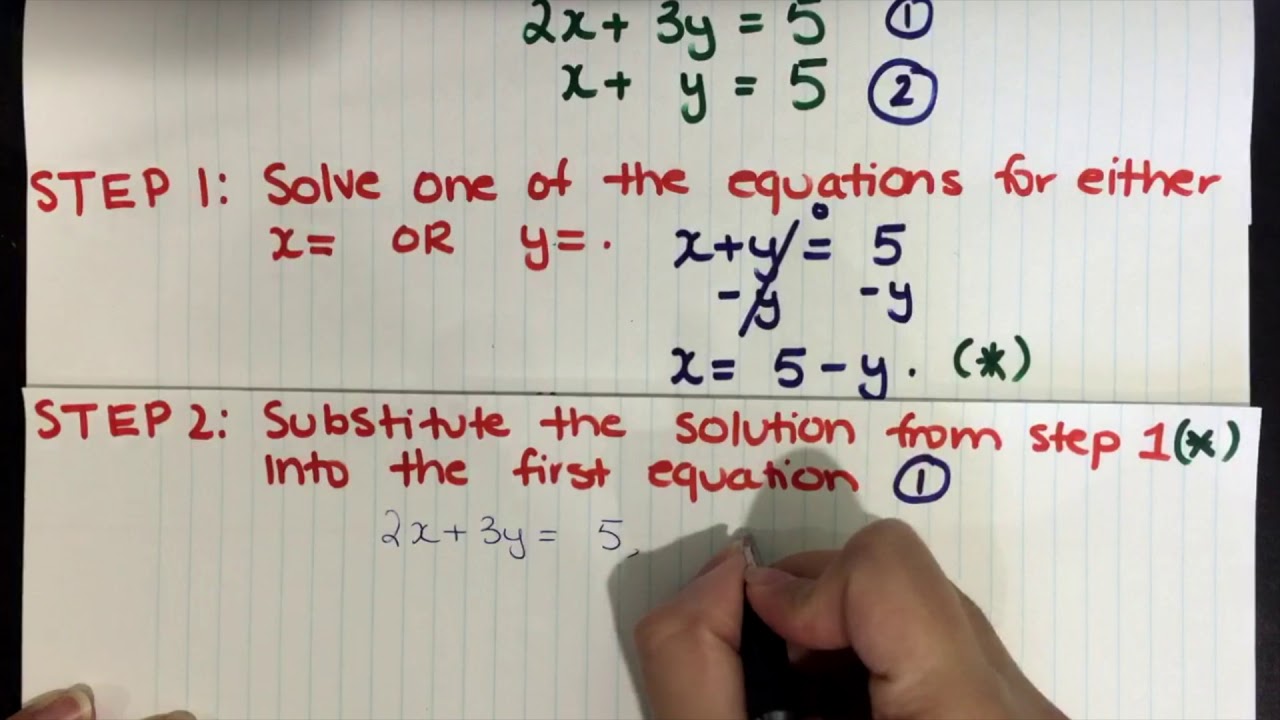 2x + 3y = 5 ①
x + y = 5 ②
STEP 1: Solve one of the equations for either
x= OR y= .
x+y = 5
-y -y
x = 5 - y . (*)
STEP 2: Substitute the solution from step 1 (*)
into the first equation ①
2x + 3y = 5,